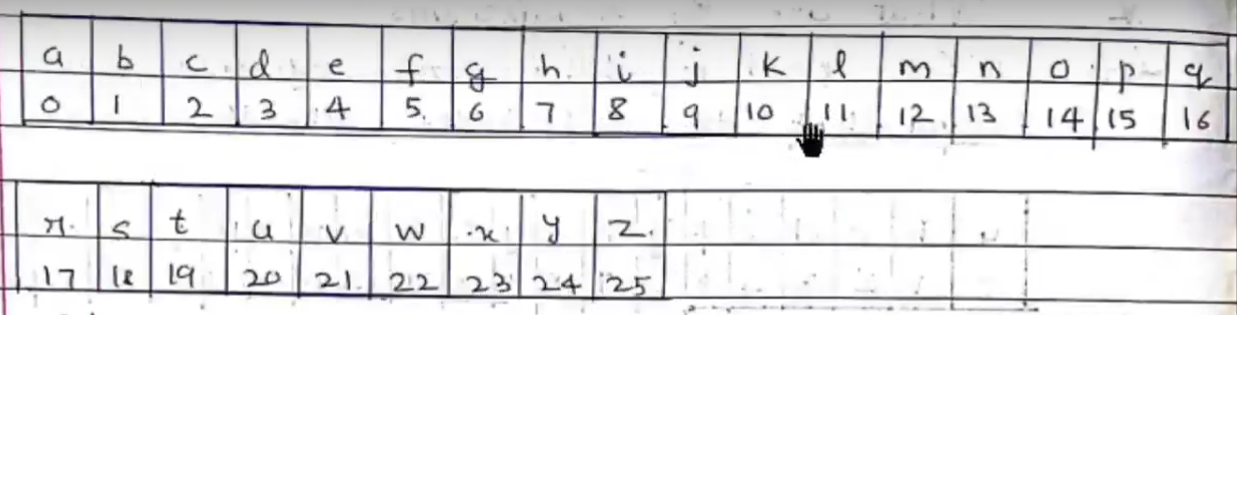 a b c d e f g h i j k l m n o p q
0 1 2 3 4 5 6 7 8 9 10 11 12 13 14 15 16
r s t u v w x y z
17 18 19 20 21 22 23 24 25